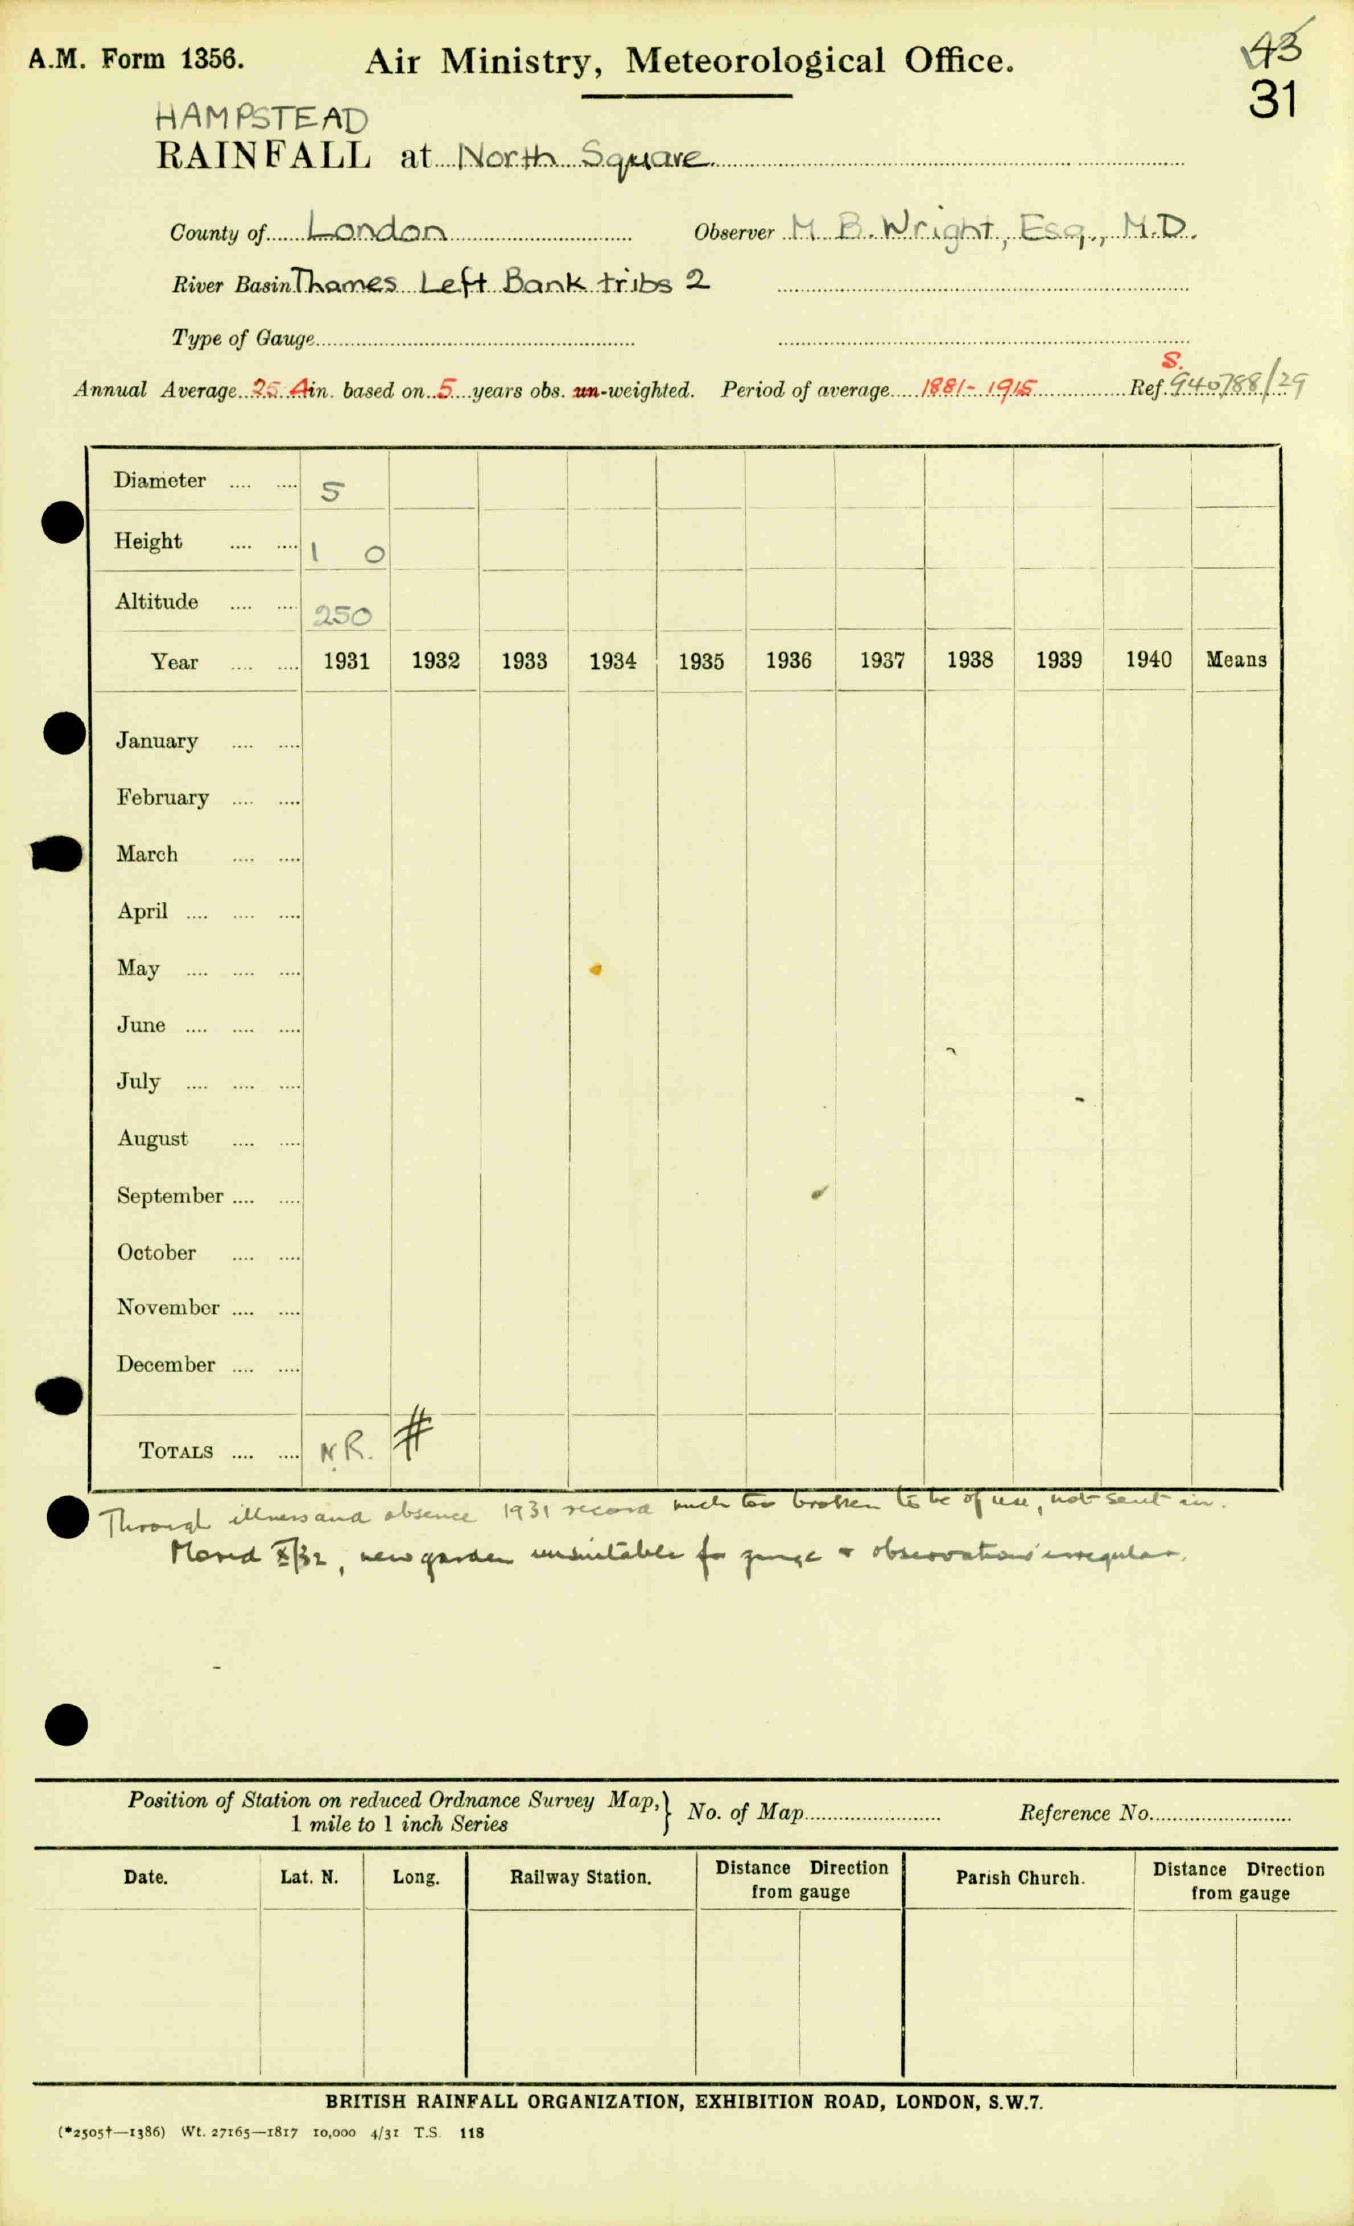 A.M. Form 1356. Air Ministry, Meteorological Office. 43
31
HAMPSTEAD
RAINFALL at North Square
County of London Observer M. B. Wright, Esq., M.D.
River Basin Thames Left Bank tribs 2
Type of Gauge
S.
Annual Average 25.4 in. based on 5 years obs. un-weighted. Period of average 1881-1915 Ref. 940788/29
Diameter .... .... 5
Height .... .... 1 0
Altitude .... .... 250
Year .... .... 1931 1932 1933 1934 1935 1936 1937 1938 1939 1940 Means
January .... ....
February .... ....
March .... ....
April .... .... ....
May .... .... ....
June .... .... ....
July .... .... ....
August .... ....
September .... ....
October .... ....
November .... ....
December .... ....
TOTALS .... .... N.R. #
Through illness and absence 1931 record much too broken to be of use, not sent in.
Moved X/32, new garden unsuitable for gauge & observations irregular.
Position of Station on reduced Ordnance Survey Map, } No. of Map Reference No.
1 mile to 1 inch Series
Date. Lat. N. Long. Railway Station. Distance Direction from gauge Parish Church. Distance Direction from gauge
BRITISH RAINFALL ORGANIZATION, EXHIBITION ROAD, LONDON, S.W.7.
(*2505†—1386) Wt. 27165—1817 10,000 4/31 T.S. 118